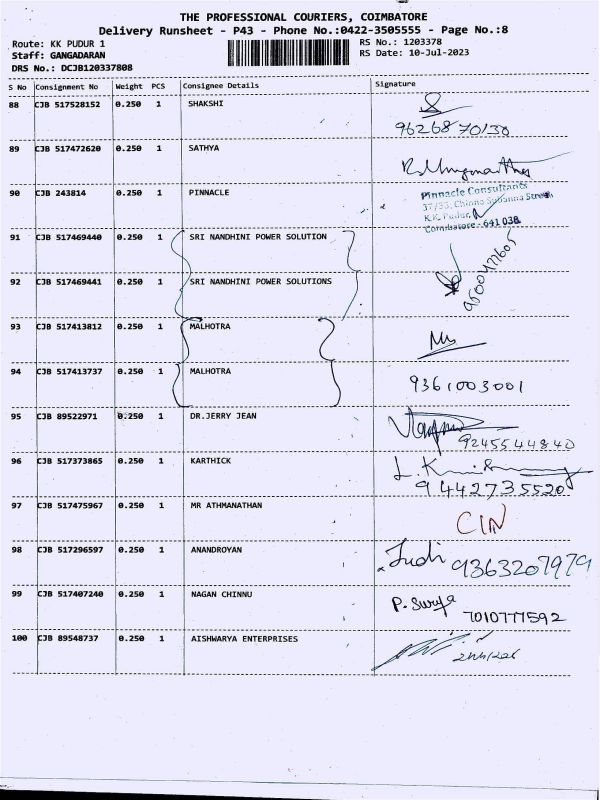 THE PROFESSIONAL COURIERS, COIMBATORE
Delivery Runsheet - P43 - Phone No.:0422-3505555 - Page No.:8
Route: KK PUDUR 1
RS No.: 1203378
Staff: GANGADARAN
RS Date: 10-Jul-2023
DRS No.: DCJB120337808
S No Consignment No Weight PCS Consignee Details Signature
88 CJB 517528152 0.250 1 SHAKSHI
9626870130
89 CJB 517472620 0.250 1 SATHYA
90 CJB 243814 0.250 1 PINNACLE
Pinnacle Consultants
37/33, Chinna Subanna Street
K.K. Pudur,
Coimbatore - 641 038
91 CJB 517469440 0.250 1 SRI NANDHINI POWER SOLUTION
92 CJB 517469441 0.250 1 SRI NANDHINI POWER SOLUTIONS
93 CJB 517413812 0.250 1 MALHOTRA
94 CJB 517413737 0.250 1 MALHOTRA
9361003001
95 CJB 89522971 0.250 1 DR.JERRY JEAN
9245544840
96 CJB 517373865 0.250 1 KARTHICK
9442735520
97 CJB 517475967 0.250 1 MR ATHMANATHAN
CIN
98 CJB 517296597 0.250 1 ANANDROYAN
Judi 9363207979
99 CJB 517407240 0.250 1 NAGAN CHINNU
P. Surya
7010777592
100 CJB 89548737 0.250 1 AISHWARYA ENTERPRISES